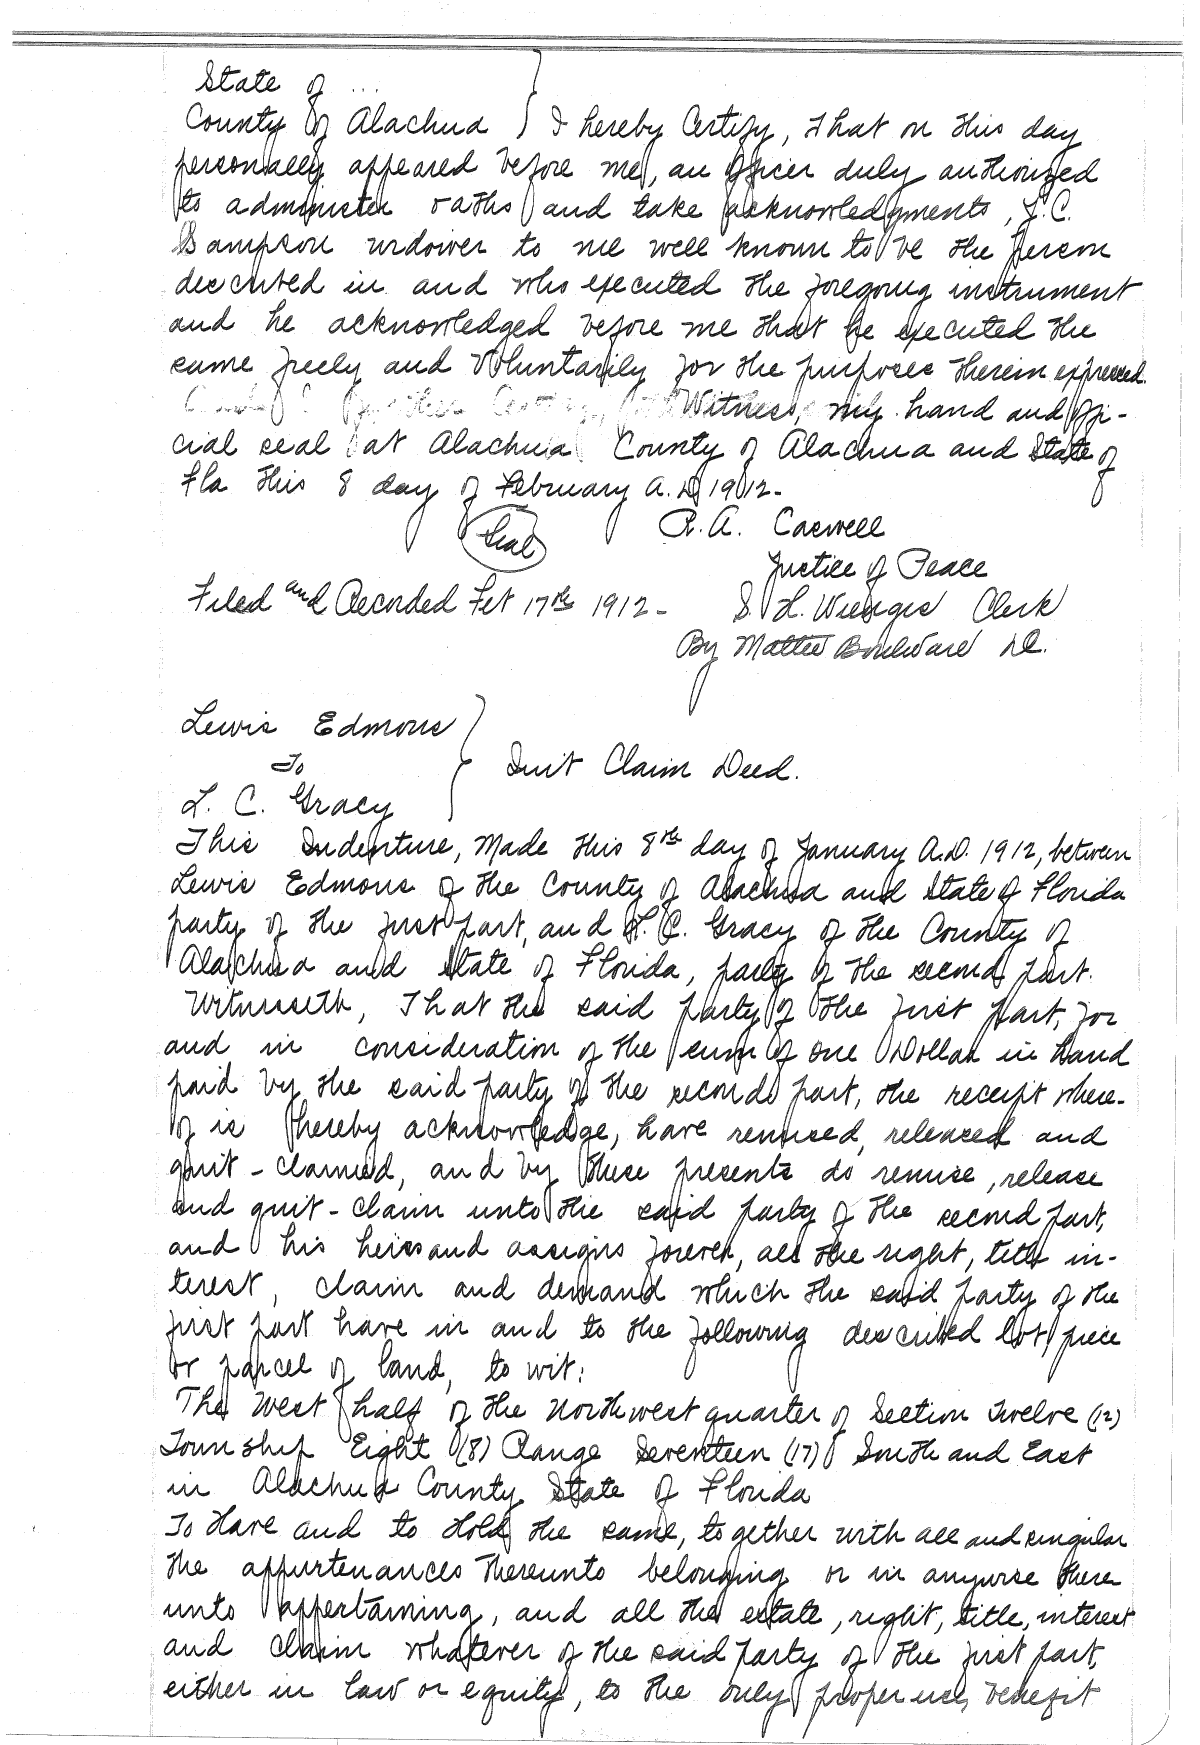 State of ...
County of Alachua } I hereby Certify, That on this day
personally appeared before me, an officer duly authorized
to administer oaths and take acknowledgments, L.C.
Sampson widower to me well known to be the person
described in and who executed the foregoing instrument
and he acknowledged before me that he executed the
same freely and voluntarily for the purposes therein expressed.
Witness, my hand and offi-
cial seal at Alachua County of Alachua and State of
Fla this 8 day of February A.D. 1912-
Seal R. A. Caswell
Justice of Peace
Filed and Recorded Feb 17th 1912- S. H. Wienges Clerk
By Mattie Boulware D.C.
Lewis Edmons
To } Quit Claim Deed.
L. C. Gracy
This Indenture, Made this 8th day of January A.D. 1912, between
Lewis Edmons of the County of Alachua and State of Florida
party of the first part, and L. C. Gracy of the County of
Alachua and State of Florida, party of the second part.
Witnesseth, That the said party of the first part, for
and in consideration of the sum of one Dollar in hand
paid by the said party of the second part, the receipt where-
of is hereby acknowledge, have remised, released and
quit-claimed, and by these presents do remise, release
and quit-claim unto the said party of the second part,
and his heirs and assigns forever, all the right, title in-
terest, claim and demand which the said party of the
first part have in and to the following described lot, piece
or parcel of land, to wit:
The West half of the Northwest quarter of Section Twelve (12)
Township Eight (8) Range Seventeen (17) South and East
in Alachua County State of Florida
To Have and to Hold the same, together with all and singular
the appurtenances thereunto belonging or in anywise there
unto appertaining, and all the estate, right, title, interest
and claim whatever of the said party of the first part,
either in law or equity, to the only proper use, benefit